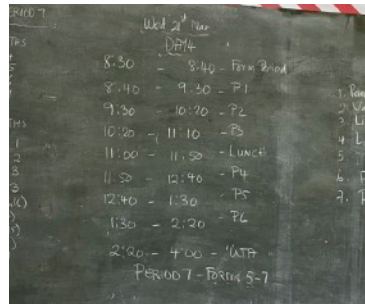 PERIOD 7
Wed 21st Mar
DAY 4
8.30 - 8.40 - Form Period
8.40 - 9.30 - P1
9:30 - 10:20 - P2
10:20 - 11:10 - P3
11:00 - 11:50 - LUNCH
11:50 - 12:40 - P4
12:40 - 1:30 - P5
1:30 - 2:20 - P6
2:20 - 4:00
PERIOD 7 - FORMS 5-7
1.
2.
3. Li
4. L
5.
6.
7.